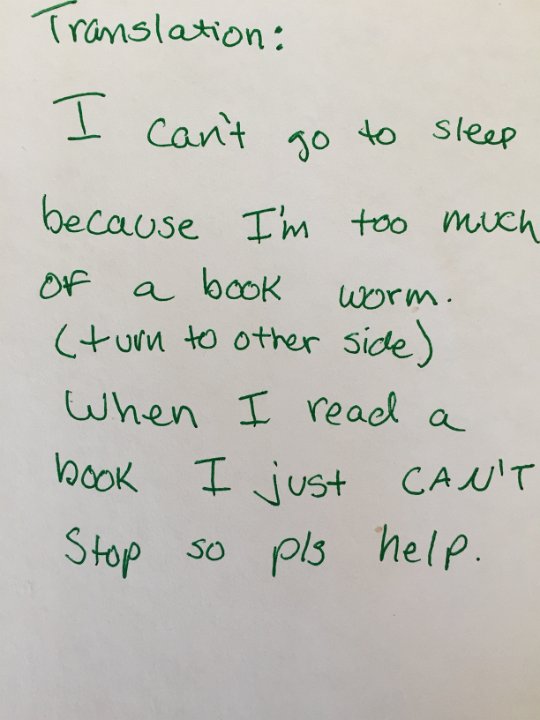 Translation:
I can't go to sleep
because I'm too much
of a book worm.
(turn to other side)
When I read a
book I just CAN'T
Stop so pls help.